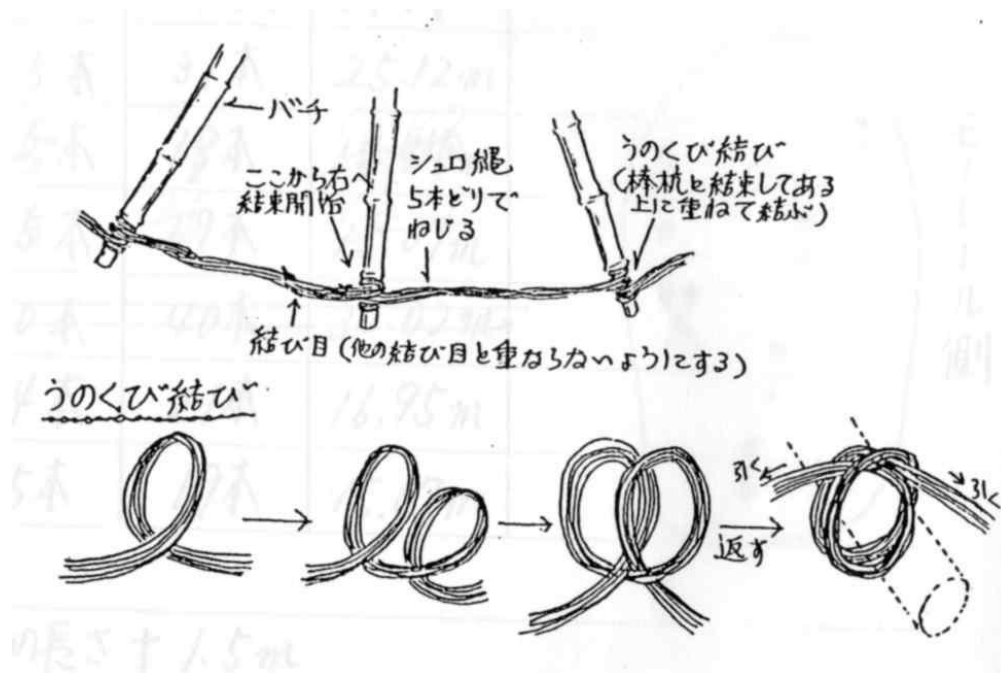 バチ
ここから右へ
結束開始
シュロ縄
5本どりで
ねじる
うのくび結び
(棒杭と結束してある
上に重ねて結ぶ)
結び目(他の結び目と重ならないようにする)
うのくび結び
返す
引く
引く
25.12m
40本
16.95m
の長さ+1.5m